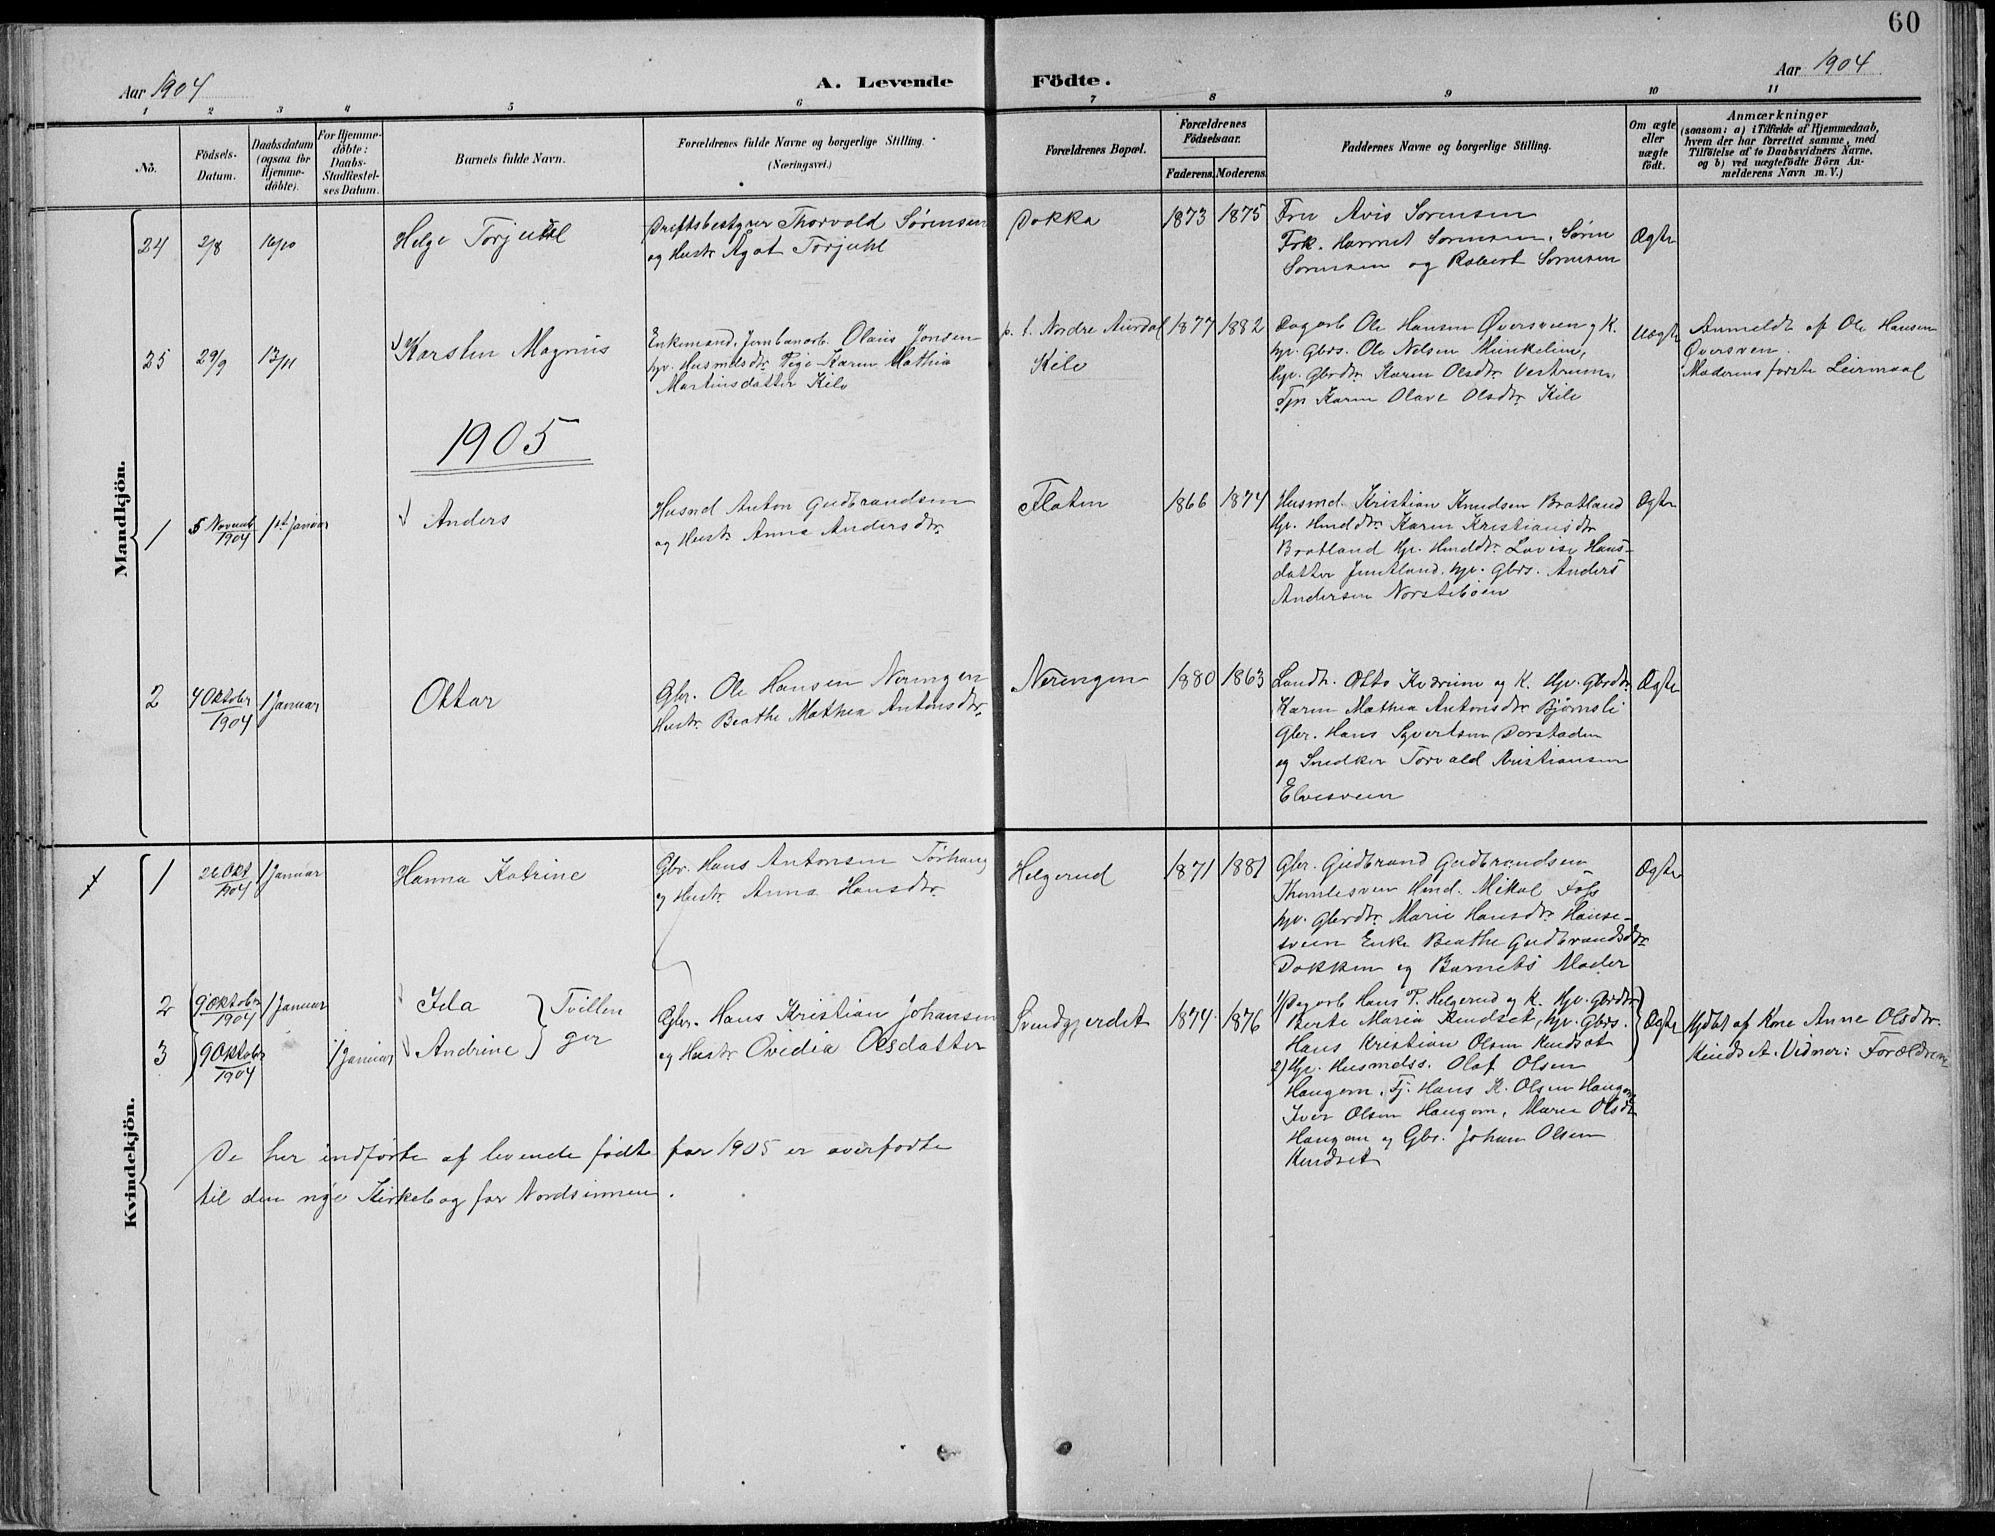 60
Aar 1904
A. Levende Födte.
Aar 1904
1 2 3 4 5 6 7 8 9 10 11
No.
Födsels-Datum.
Daabsdatum (ogsaa for Hjemme-döbte).
For Hjemme-döbte: Daabs-Stadfæstel-ses Datum.
Barnets fulde Navn.
Forældrenes fulde Navne og borgerlige Stilling.
(Næringsvei.)
Forældrenes Bopæl.
Forældrenes Födselsaar.
Faderens. Moderens.
Faddernes Navne og borgerlige Stilling.
Om ægte eller uægte födt.
Anmærkninger
(saasom: a) i Tilfælde af Hjemmedaab,
hvem der har forrettet samme, med
Tilföielse af to Daabsvidners Navne,
og b) ved uægtefödte Börn An-
melderens Navn m. V.)
Mandkjön.
24 2/8 16/10 Helge Torjuul
Driftsbestyrer Thorvold Sørensen
og Hustr Agot Torjuhl
Dokka 1873 1875
Fru Avis Sørensen
Frk. Harriet Sørensen, Sørine
Sørensen og Robert Sørensen
Ægte
25 29/9 13/11 Karsten Magnus
Enkemand, Jernbanearb. Olaus Jonsen
hv. Husmdsdtr. Pige Karen Mathia
Martinsdatter Kile
p. t. Nordre Aurdal
Kile
1877 1882
Dagarb Ole Hansen Øversveen og K.
hv. Gbrs. Ole Nelsen Munkelien,
Hv. Gbrdtr Karen Olsdtr. Vestrum.
Tjp Karen Olave Olsdtr. Kile
Uægte
Anmeldt af Ole Hansen
Øversven.
Moderens første Leirmaal
1905
1 5 Novemb/1904 1st Januar Anders
Husmd Anton Gudbrandsen
og Hustr Anna Andersdtr.
Flaten 1866 1874
Husmd. Kristian Knudsen Bratland
Hv. Hmddtr. Karen Kristiansdtr
Bratland Hv. Hmddtr. Lovise Hans-
datter Jemtland. hv. Gbrs. Anders
Andersen Norsteboen
Ægte
2 4 Oktober/1904 1 Januar Ottar
Gbr. Ole Hansen Nerengen
Hustr. Beathe Mathea Antonsdtr.
Nerengen 1880 1863
Landh. Otto Kværne og K. Hv. Gbrdtr.
Karen Mathea Antonsdtr Bjørnsli
Gbr. Hans Syvertsen Dorstaden
og Snedker Torvald Kristiansen
Elvesveen
Ægte
Kvindekjön.
1 26 Okt/1904 1 Januar Hanna Katrine
Gbr. Hans Antonsen Torhaug
og Hustr Anna Hansdtr.
Helgerud 1871 1881
Gbr. Gudbrand Gudbrandsen
Thomlesveen Hmd. Mikal Foss
hv. Gbrdtr. Marie Hansdtr. Hanse-
sveen Enke Beathe Gudbrandsdtr
Dokken og Barnets Moder
Ægte
2 9 Oktober/1904 1 Januar Ida
3 9 Oktober/1904 1 Januar Andrine
Tvillin
ger
Gbr. Hans Kristian Johansen
og Hustr Ovidia Olsdatter
Svendgjerdet 1874 1876
1) Dagarb Hans P. Helgerud og K. Hv. Gbrdtr
Berte Maria Kindset, hv. Gbrs.
Hans Kristian Olsen Kindset
2) Hv. Husmdss. Olaf Olsen
Haugom. Tj. Hans K. Olsen Haugom
Iver Olsen Haugom, Marie Olsdtr
Haugom og Gbr. Johan Olsen
Kindset
Ægte
Hjdbt af Kone Anne Olsdtr.
Kindset. Vidner: Forældrene
De her indførte af levende født for 1905 er overførte
til den nye Kirkebog for Nordsinnen.